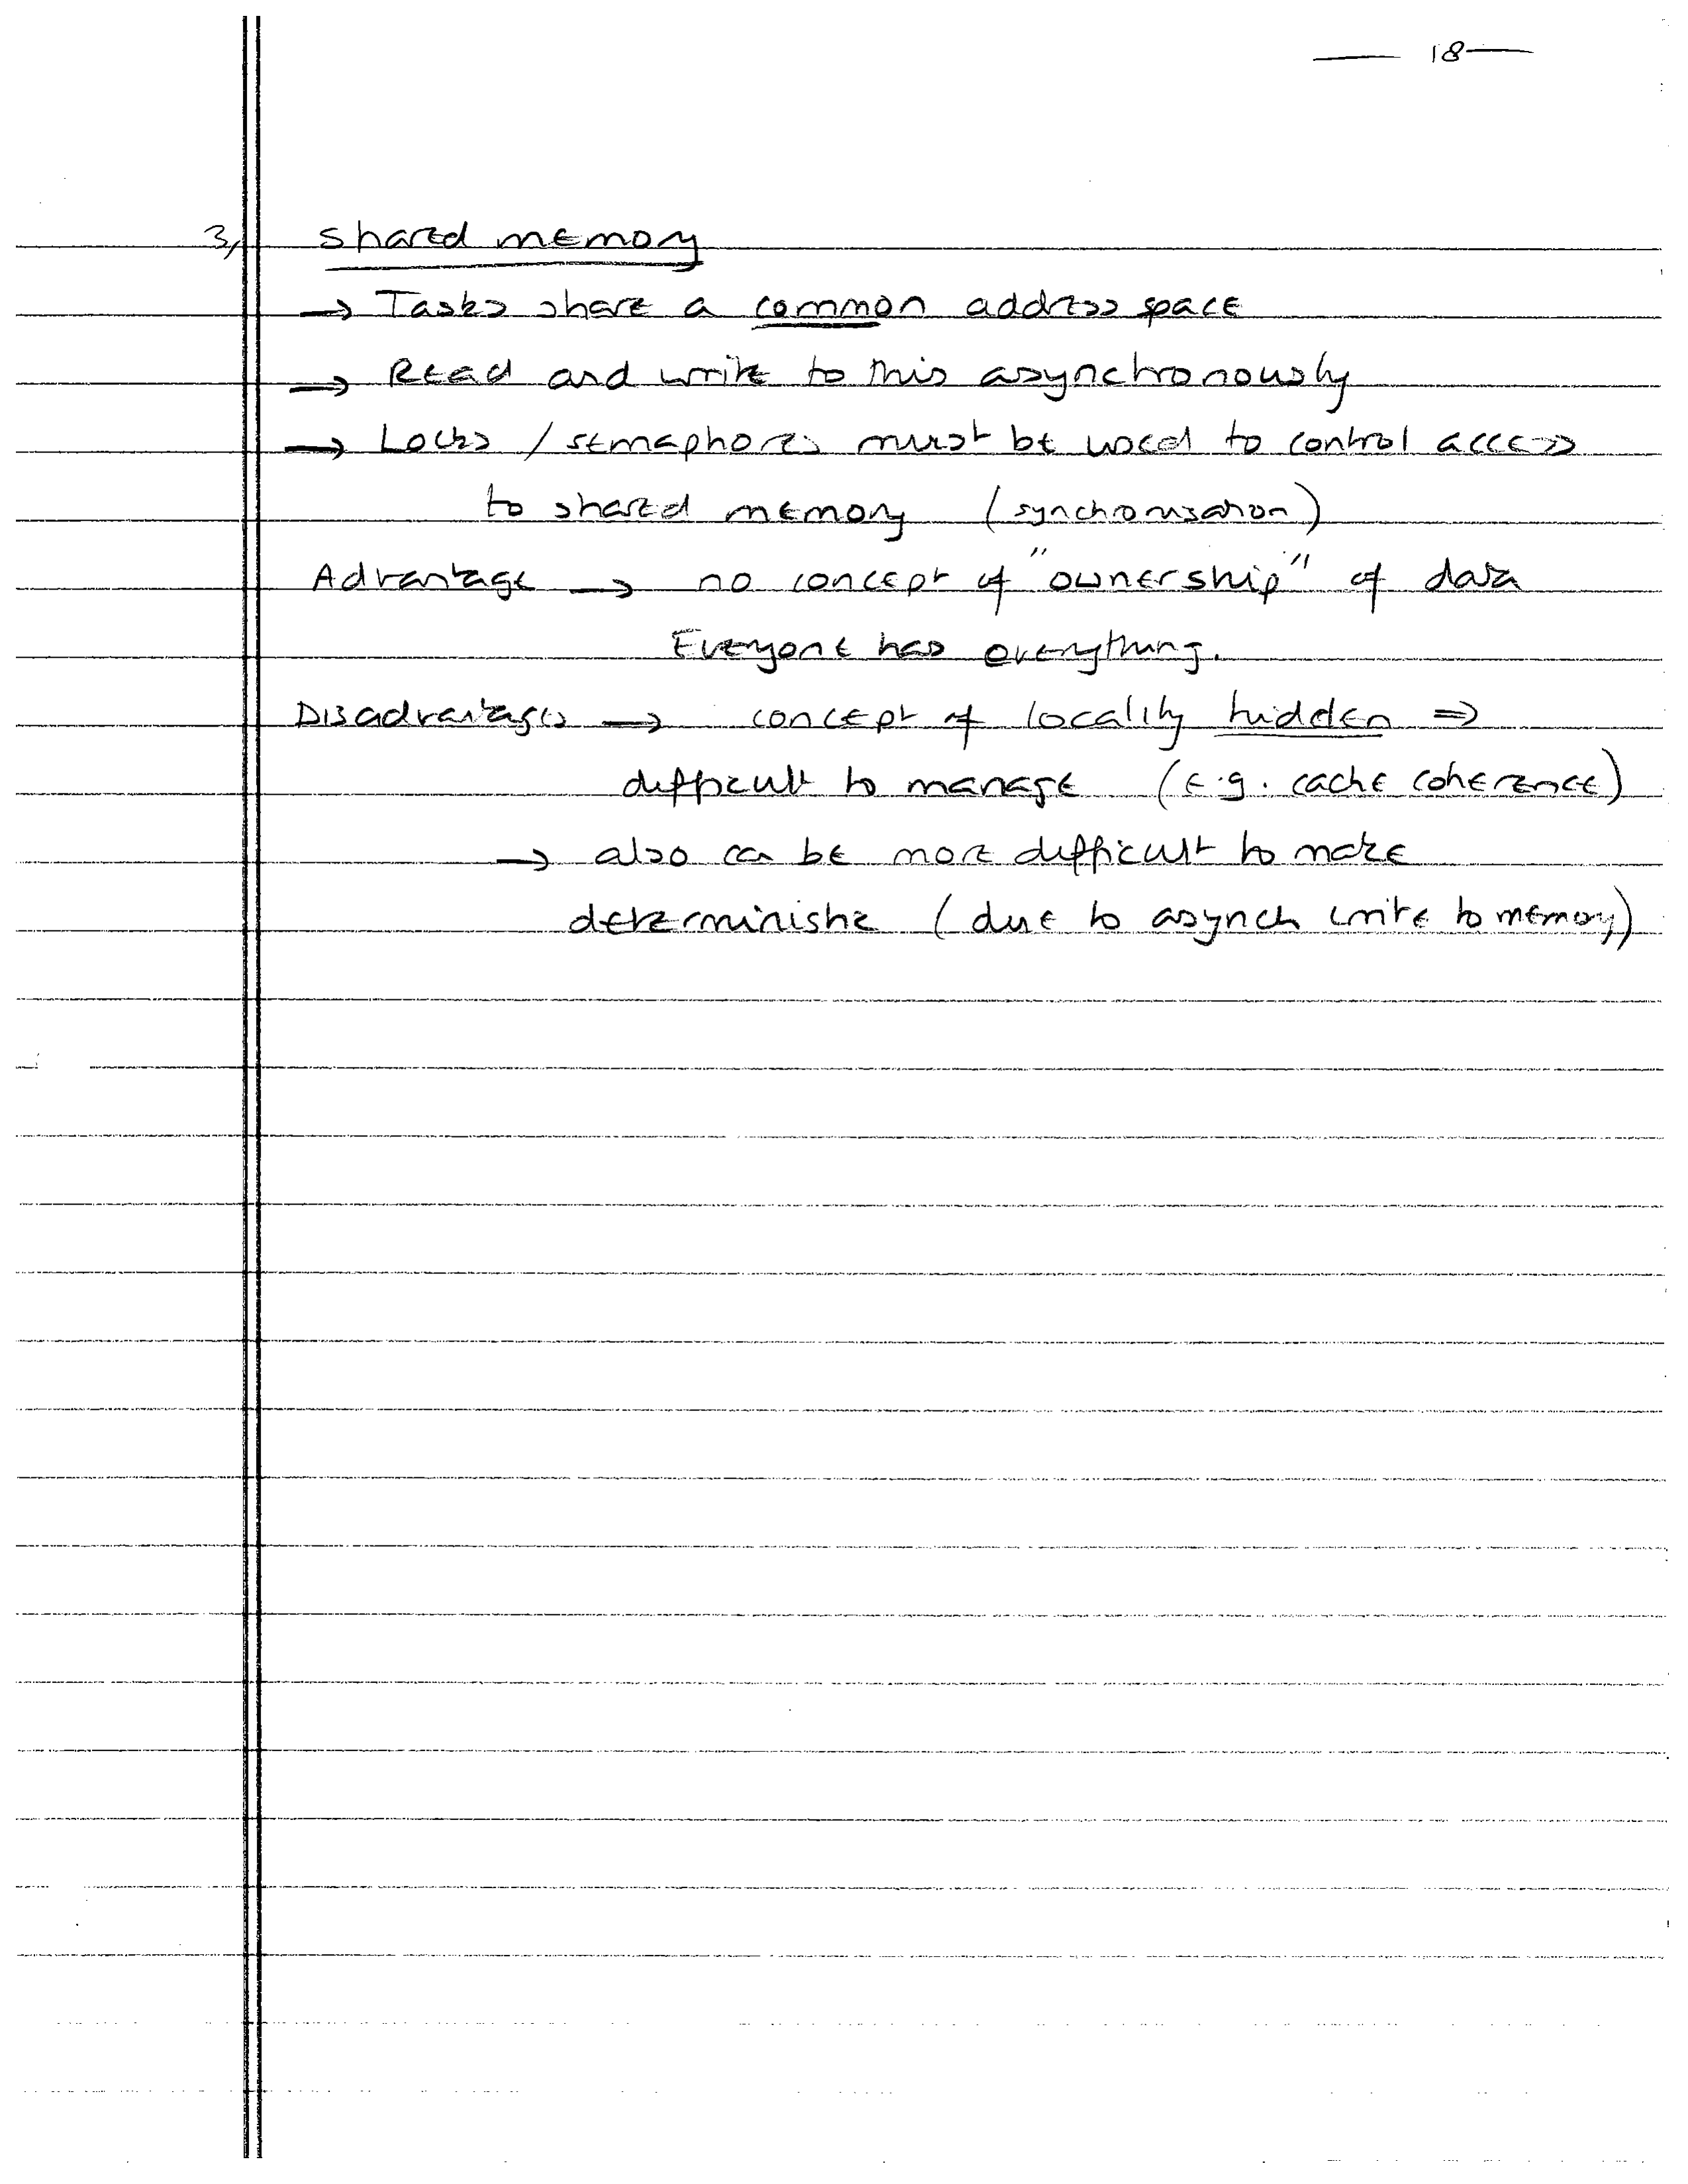 — 18 —
3, shared memory
→ Tasks share a common address space
→ Read and write to this asynchronously
→ Locks / semaphores must be used to control access
to shared memory (synchronisation)
Advantage → no concept of "ownership" of data
Everyone has everything.
Disadvantages → concept of locality hidden ⇒
difficult to manage (e.g. cache coherence)
→ also can be more difficult to make
deterministic (due to asynch write to memory)